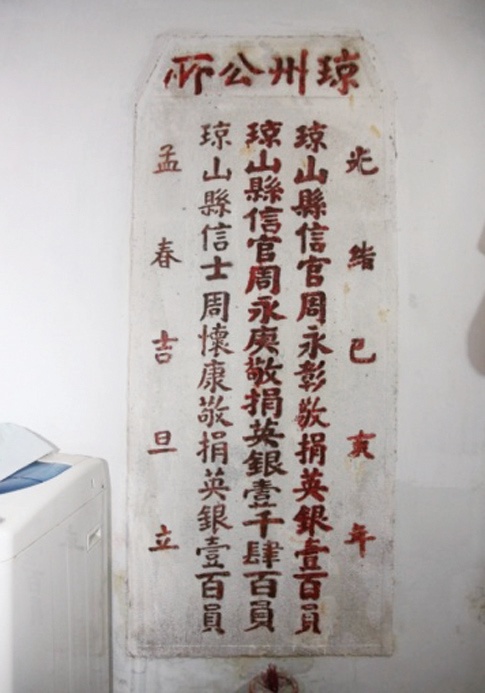 琼州公所
光绪己亥年
琼山縣信官周永彰敬捐英銀壹百員
琼山縣信官周永庚敬捐英銀壹千肆百員
琼山縣信士周懷康敬捐英銀壹百員
孟春吉旦立